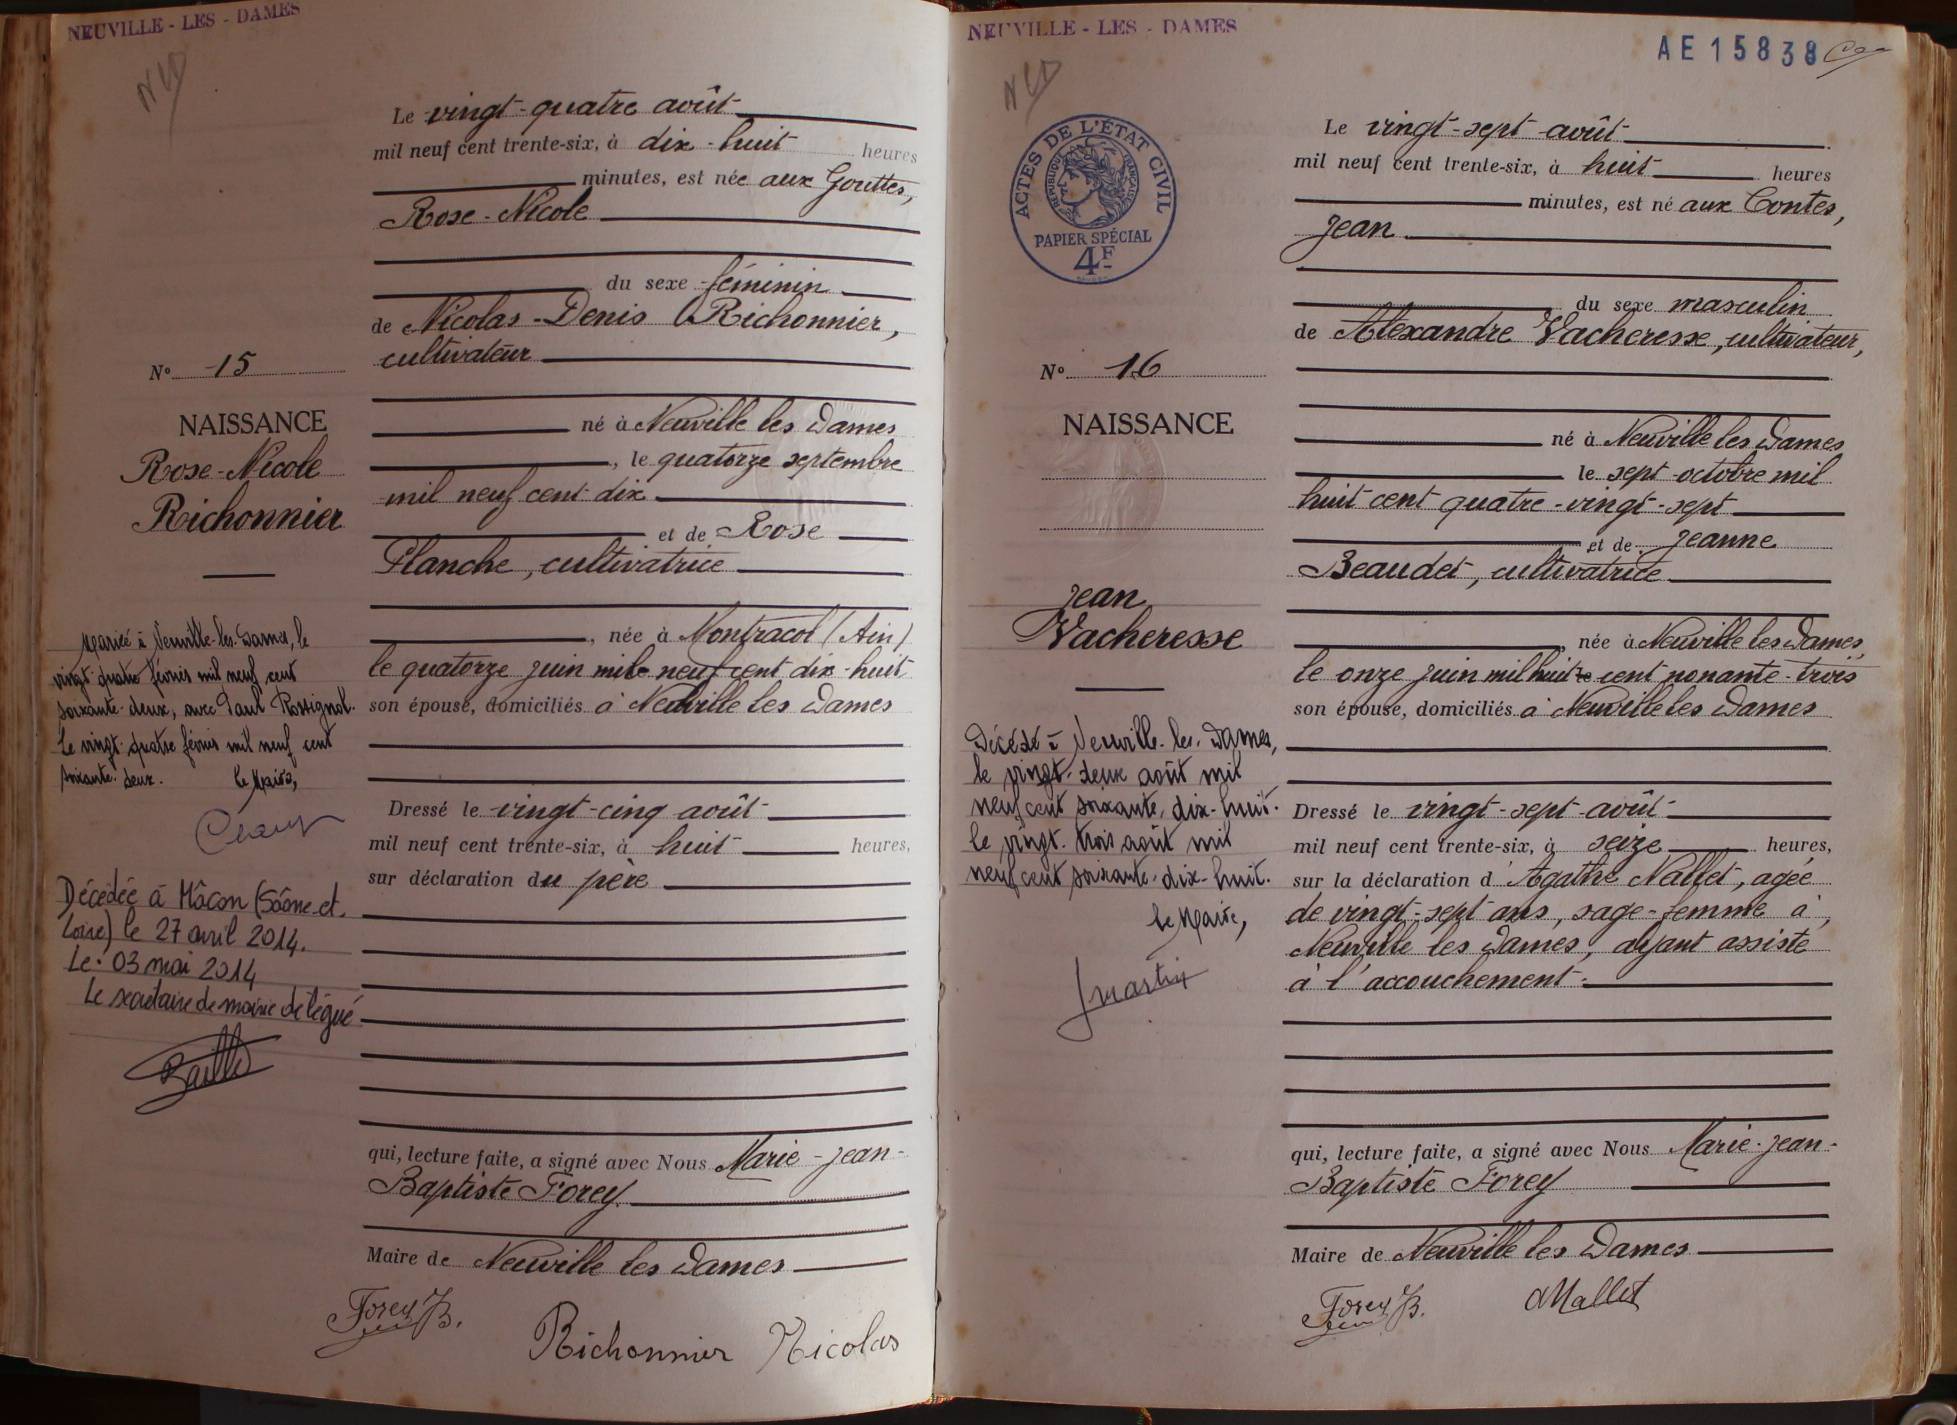 NEUVILLE - LES - DAMES
Le vingt-quatre août
mil neuf cent trente-six, à dix-huit heures
minutes, est née aux Gouttes,
Rose-Nicole
du sexe féminin
de Nicolas-Denis Richonnier,
cultivateur
né à Neuville les Dames
, le quatorze septembre
mil neuf cent dix
et de Rose
Planche, cultivatrice
, née à Montracol (Ain)
le quatorze juin mil neuf cent dix-huit
son épouse, domiciliés à Neuville les Dames
Dressé le vingt-cinq août
mil neuf cent trente-six, à huit heures,
sur déclaration du père
qui, lecture faite, a signé avec Nous Marie-Jean-
Baptiste Forey
Maire de Neuville les Dames
Forey JB.
Richonnier Nicolas
N° 15
NAISSANCE
Rose-Nicole
Richonnier
Mariée à Neuville-les-Dames, le
vingt-quatre février mil neuf cent
soixante-deux, avec Paul Rossignol.
Le vingt-quatre février mil neuf cent
soixante-deux. Le Maire,
Décédée à Mâcon (Saône-et-
Loire) le 27 avril 2014.
Le 03 mai 2014
Le secrétaire de mairie délégué
NEUVILLE - LES - DAMES
AE 15838
ACTES DE L'ÉTAT CIVIL
RÉPUBLIQUE FRANÇAISE
PAPIER SPÉCIAL
4F
Le vingt-sept août
mil neuf cent trente-six, à huit heures
minutes, est né aux Contes,
Jean
du sexe masculin
de Alexandre Vacheresse, cultivateur,
né à Neuville les Dames
le sept octobre mil
huit cent quatre-vingt-sept
et de Jeanne
Beaudet, cultivatrice
, née à Neuville les Dames,
le onze juin mil huit cent nonante-trois
son épouse, domiciliés à Neuville les Dames
Dressé le vingt-sept août
mil neuf cent trente-six, à seize heures,
sur la déclaration d'Agathe Mallet, agée
de vingt-sept ans, sage-femme à
Neuville les Dames, ayant assisté
à l'accouchement.
qui, lecture faite, a signé avec Nous Marie-Jean-
Baptiste Forey
Maire de Neuville les Dames
Forey JB.
AMallet
N° 16
NAISSANCE
Jean
Vacheresse
Décédé à Neuville-les-Dames,
le vingt-deux août mil
neuf cent soixante-dix-huit.
le vingt-trois août mil
neuf cent soixante-dix-huit.
Le Maire,